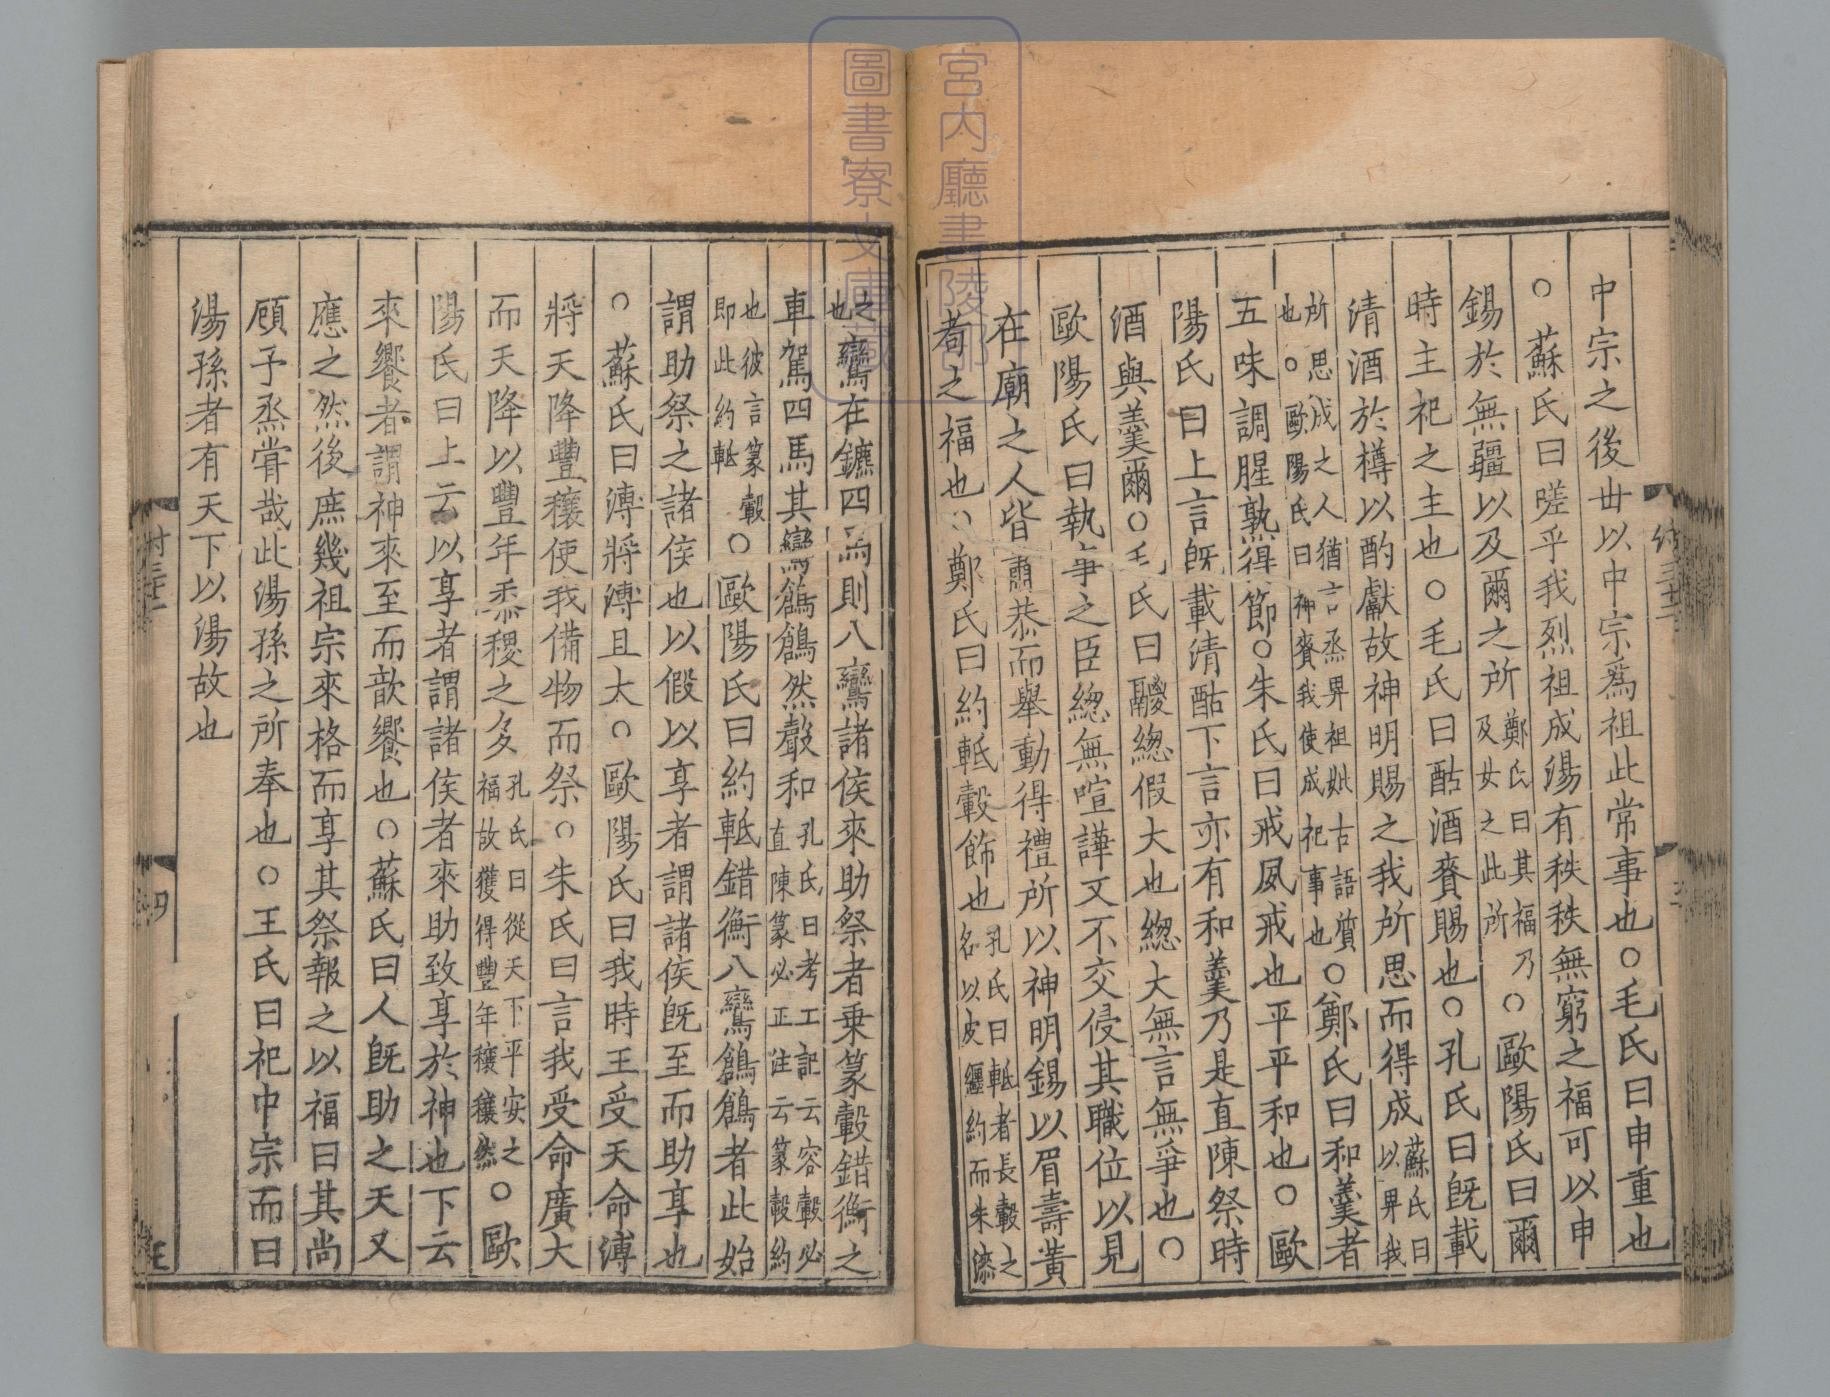 中宗之後世以中宗爲祖此常事也○毛氏曰申重也
○蘇氏曰嗟乎我烈祖成湯有秩秩無窮之福可以申
錫於無疆以及爾之所鄭氏曰其福乃及女之此所○歐陽氏曰爾
時主祀之主也○毛氏曰酤酒賚賜也○孔氏曰旣載
清酒於樽以酌獻故神明賜之我所思而得成蘇氏曰以畀我
所思成之人猶言烝畀祖妣古語質也○歐陽氏曰神賚我使成祀事也○鄭氏曰和羹者
五味調腥熟得節○朱氏曰戒夙戒也平平和也○歐
陽氏曰上言旣載清酤下言亦有和羹乃是直陳祭時
酒與羹爾○毛氏曰鬷緫假大也緫大無言無爭也○
歐陽氏曰執事之臣緫無喧譁又不交侵其職位以見
在廟之人皆肅恭而舉動得禮所以神明錫以眉壽黃
耇之福也○鄭氏曰約軧轂飾也孔氏曰軧者長轂之名以皮纏約而朱漆
之也鸞在鑣四馬則八鸞諸侯來助祭者乗篆轂錯衡之
車駕四馬其鸞鶬鶬然聲和孔氏曰考工記云容轂必直陳篆必正注云篆轂約
也彼言篆轂即此約軧○歐陽氏曰約軧錯衡八鸞鶬鶬者此始
謂助祭之諸侯也以假以享者謂諸侯旣至而助享也
○蘇氏曰溥將溥且大○歐陽氏曰我時王受天命溥
將天降豐穰使我備物而祭○朱氏曰言我受命廣大
而天降以豐年黍稷之多孔氏曰從天下平安之福故獲得豐年穰穰然○歐
陽氏曰上云以享者謂諸侯者來助致享於神也下云
來饗者謂神來至而歆饗也○蘇氏曰人旣助之天又
應之然後庶幾祖宗來格而享其祭報之以福曰其尚
顧予烝嘗哉此湯孫之所奉也○王氏曰祀中宗而曰
湯孫者有天下以湯故也
四
宮内廳書陵部
圖書寮文庫蔵